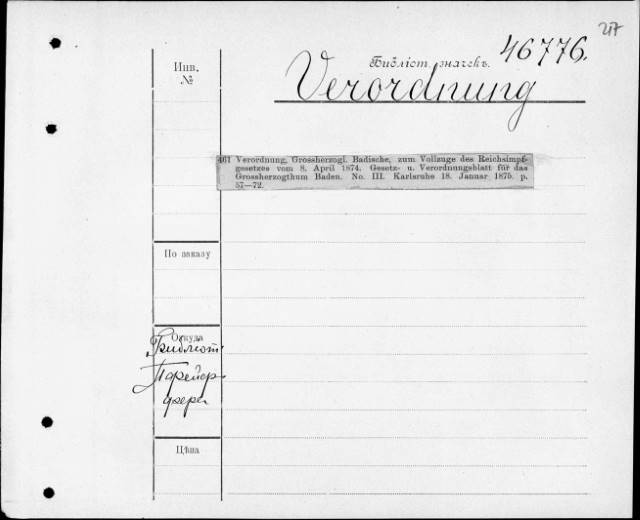 217
46776.
Библіот. значекъ.
Verordnung
Инв.
№
461 Verordnung, Grossherzogl. Badische, zum Vollzuge des Reichsimpf-
gesetzes vom 8. April 1874. Gesetz- u. Verordnungsblatt für das
Grossherzogthum Baden. No. III. Karlsruhe 18. Januar 1875. p.
57—72.
По заказу
Откуда
Библіот.
Цѣна